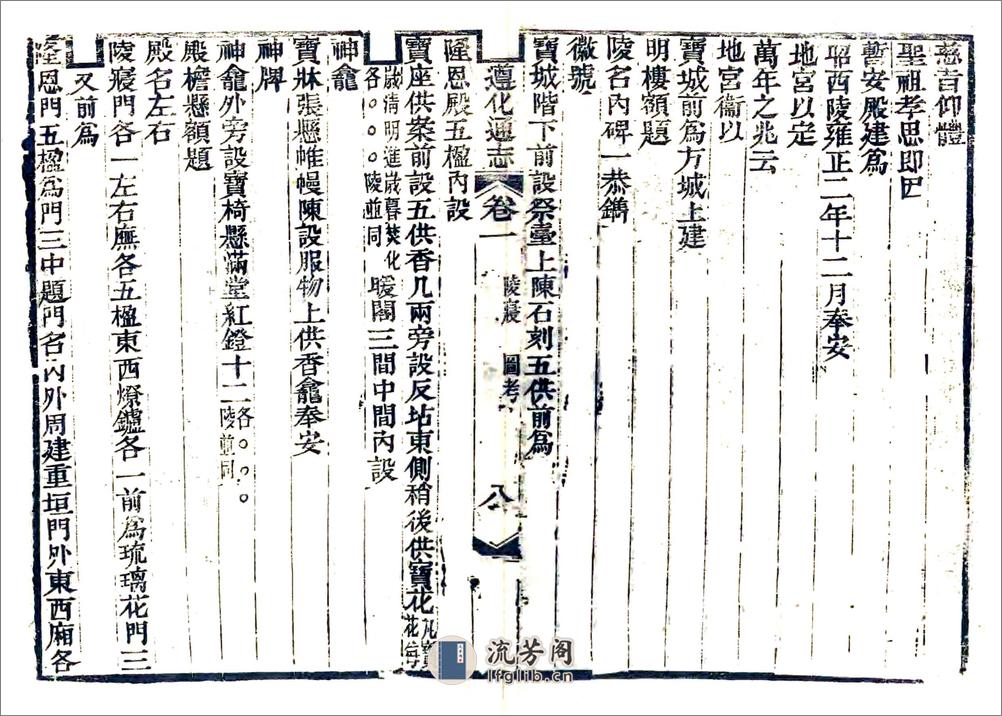 慈旨仰體
聖祖孝思即
暫安殿建爲
昭西陵雍正二年十二月奉安
地宮以定
萬年之兆云
地宮衞以
寶城前爲方城上建
明樓額題
陵名內碑一恭鐫
徽號
寶城階下前設祭臺上陳石刻五供前爲
遵化通志
卷一
陵寢
圖考
隆恩殿五楹內設
寶座供案前設五供香几兩旁設反坫東側稍後供寶花凡寶花每
歲清明進歲暮焚化各○○○陵並同暖閣三間中間內設
神龕
寶牀張懸帷幔陳設服物上供香龕奉安
神牌
神龕外旁設寶椅懸滿堂紅鐙十二各○○○陵並同
殿檐懸額題
殿名左右
陵寢門各一左右廡各五楹東西燎鑪各一前爲琉璃花門三
又前爲
隆恩門五楹爲門三中題門名內外周建重垣門外東西廂各
流芳阁
lfglib.cn